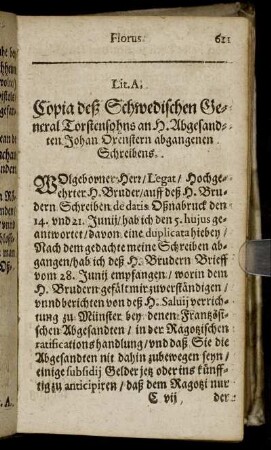 Florus. 621
Lit. A.
Copia deß Schwedischen Ge-
neral Torstensohns an H. Abgesand-
ten Johan Oxenstern abgangenen
Schreibens.
WOlgeborner Herr/ Legat/ Hochge-
ehrter H. Bruder/ auff deß H. Bru-
dern Schreiben de datis Oßnabruck den
14. vnd 21. Junij/ hab ich den 5. hujus ge-
antwortet/ davon eine duplicata hiebey/
Nach dem gedachte meine Schreiben ab-
gangen/ hab ich deß H. Brudern Brieff
vom 28. Junij empfangen/ worin dem
H. Brudern gefält mir zuverständigen/
vnnd berichten von deß H. Salvij verrich-
tung zu Münster bey denen Frantzösi-
schen Abgesandten/ in der Ragotzischen
ratifications handlung/ vnd daß Sie die
Abgesandten nit dahin zubewegen seyn/
einige subsidij Gelder jetz oder ins künff-
tig zu anticipiren/ daß dem Ragotzi nur
C vij der